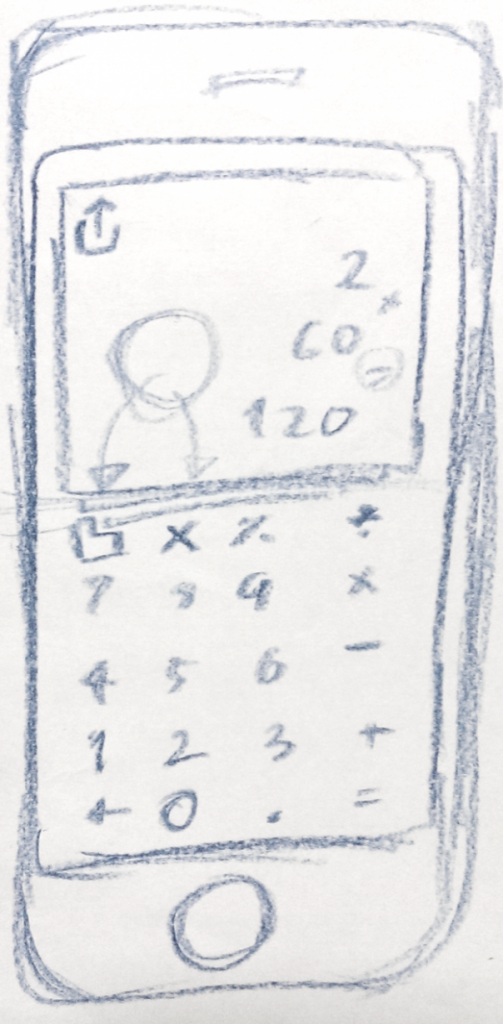 2
×
60
=
120
× % ÷
7 8 9 ×
4 5 6 −
1 2 3 +
← 0 . =